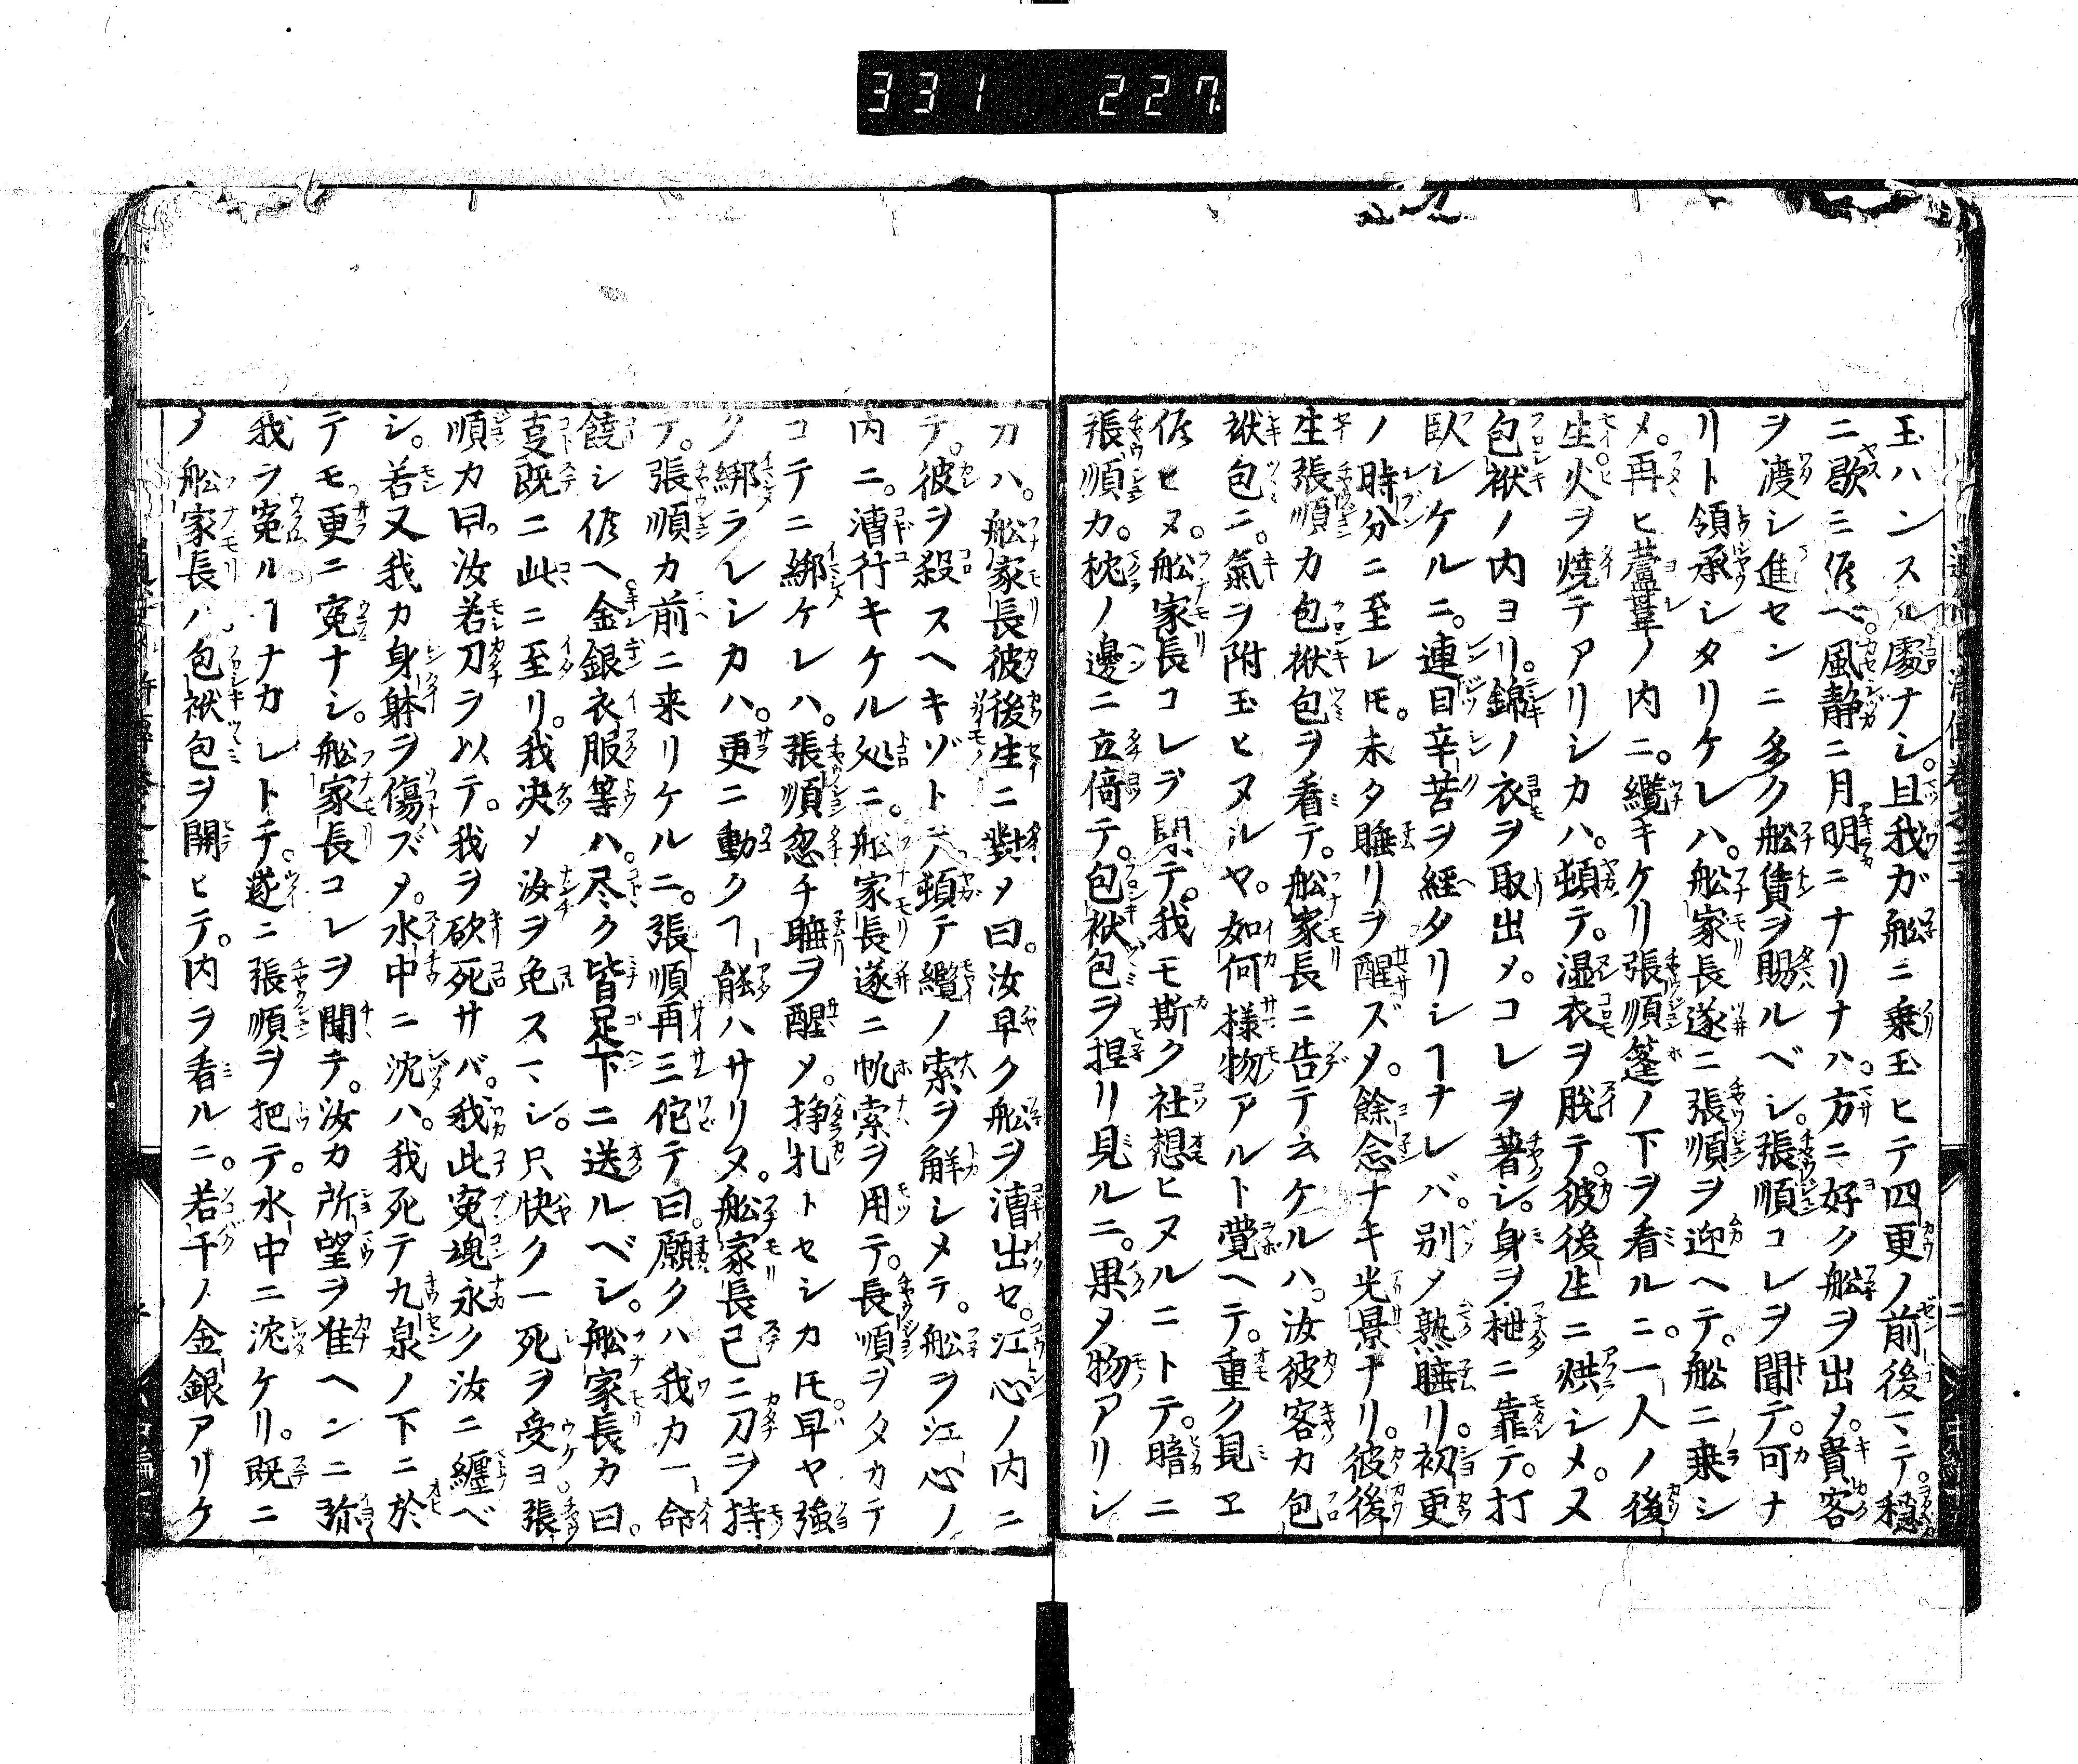 331 227
玉ハンスル處ナシ。且我ガ舩ニ乗玉ヒテ四更ノ前後マテ。穏
ニ歇ミ侭ヘ。風静ニ月明ニナリナハ。方ニ好ク舩ヲ出メ。貴客
ヲ渡シ進センニ多ク舩賃ヲ賜ルベシ。張順コレヲ聞テ。可ナ
リト領承シタリケレハ。舩家長遂ニ張順ヲ迎ヘテ。舩ニ乗シ
メ。再ヒ蘆葦ノ内ニ。纜キケリ張順篷ノ下ヲ看ルニ。一人ノ後
生火ヲ焼テアリシカハ。頓テ。湿衣ヲ脱テ。彼後生ニ烘シメ。又
包袱ノ内ヨリ。錦ノ衣ヲ取出メ。コレヲ著シ。身ヲ ニ靠テ。打
臥シケルニ。連日辛苦ヲ經タリシヿナレバ。別メ熟睡リ。初更
ノ時分ニ至レ𪜈。未タ睡リヲ醒ズメ。餘念ナキ光景ナリ。彼後
生張順カ包袱包ヲ看テ。舩家長ニ告テ云ケルハ。汝彼客カ包
袱包ニ。氣ヲ附玉ヒヌルヤ。如何様物アルト覺ヘテ。重ク見ヱ
侭ヒヌ。舩家長コレヲ聞テ。我モ斯ク社想ヒヌルニトテ。暗ニ
張順カ。枕ノ邊ニ立倚テ。包袱包ヲ捏リ見ルニ。果メ物アリシ
カハ。舩家長彼後生ニ對メ曰。汝早ク舩ヲ漕出セ。江心ノ内ニ
テ。彼ヲ殺スヘキゾトテ頓テ纜ノ索ヲ解シメテ。舩ヲ江心ノ
内ニ。漕行キケル処ニ。舩家長遂ニ帆索ヲ用テ。長順ヲタカテ
コテニ綁ケレハ。張順忽チ睡ヲ醒メ。掙扎トセシカ𪜈。早ヤ強
ク綁ラレシカハ。更ニ動クヿ能ハサリヌ。舩家長已ニ刀ヲ持
テ。張順カ前ニ来リケルニ。張順再三侘テ曰。願クハ我カ一命
饒シ侭ヘ金銀衣服等ハ。尽ク皆足下ニ送ルベシ。舩家長カ曰。
㕝既ニ此ニ至リ。我决メ汝ヲ免スマシ。只快ク一死ヲ受ヨ。張
順カ曰。汝若刀ヲ以テ。我ヲ砍死サバ。我此冤魂永ク汝ニ纏ベ
シ。若又我カ身躰ヲ傷ズメ。水中ニ沈ハ。我死テ九泉ノ下ニ於
テモ更ニ冤ナシ。舩家長コレヲ聞テ。汝カ所望ヲ准ヘンニ弥
我ヲ冤ルヿナカレトテ。遂ニ張順ヲ把テ。水中ニ沈ケリ。既ニ
ノ舩家長ハ。包袱包ヲ開ヒテ。内ヲ看ルニ。若干ノ金銀アリケ